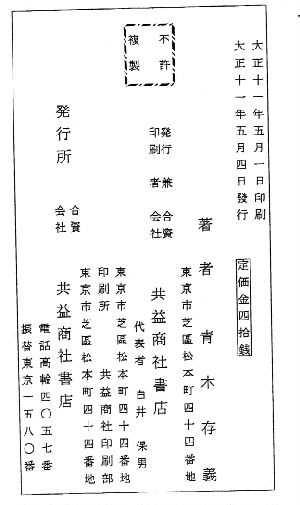 大正十一年五月一日印刷
大正十一年五月四日發行
定価金四拾銭
不許
複製
著者 青木存義
東京市芝區松本町四十四番地
發行兼印刷者
合資会社 共益商社書店
代表者 白井 保男
東京市芝區松本町四十四番地
印刷所 共益商社印刷部
東京市芝區松本町四十四番地
発行所
合資会社 共益商社書店
電話高輪四〇五七番
振替東京一五八〇番